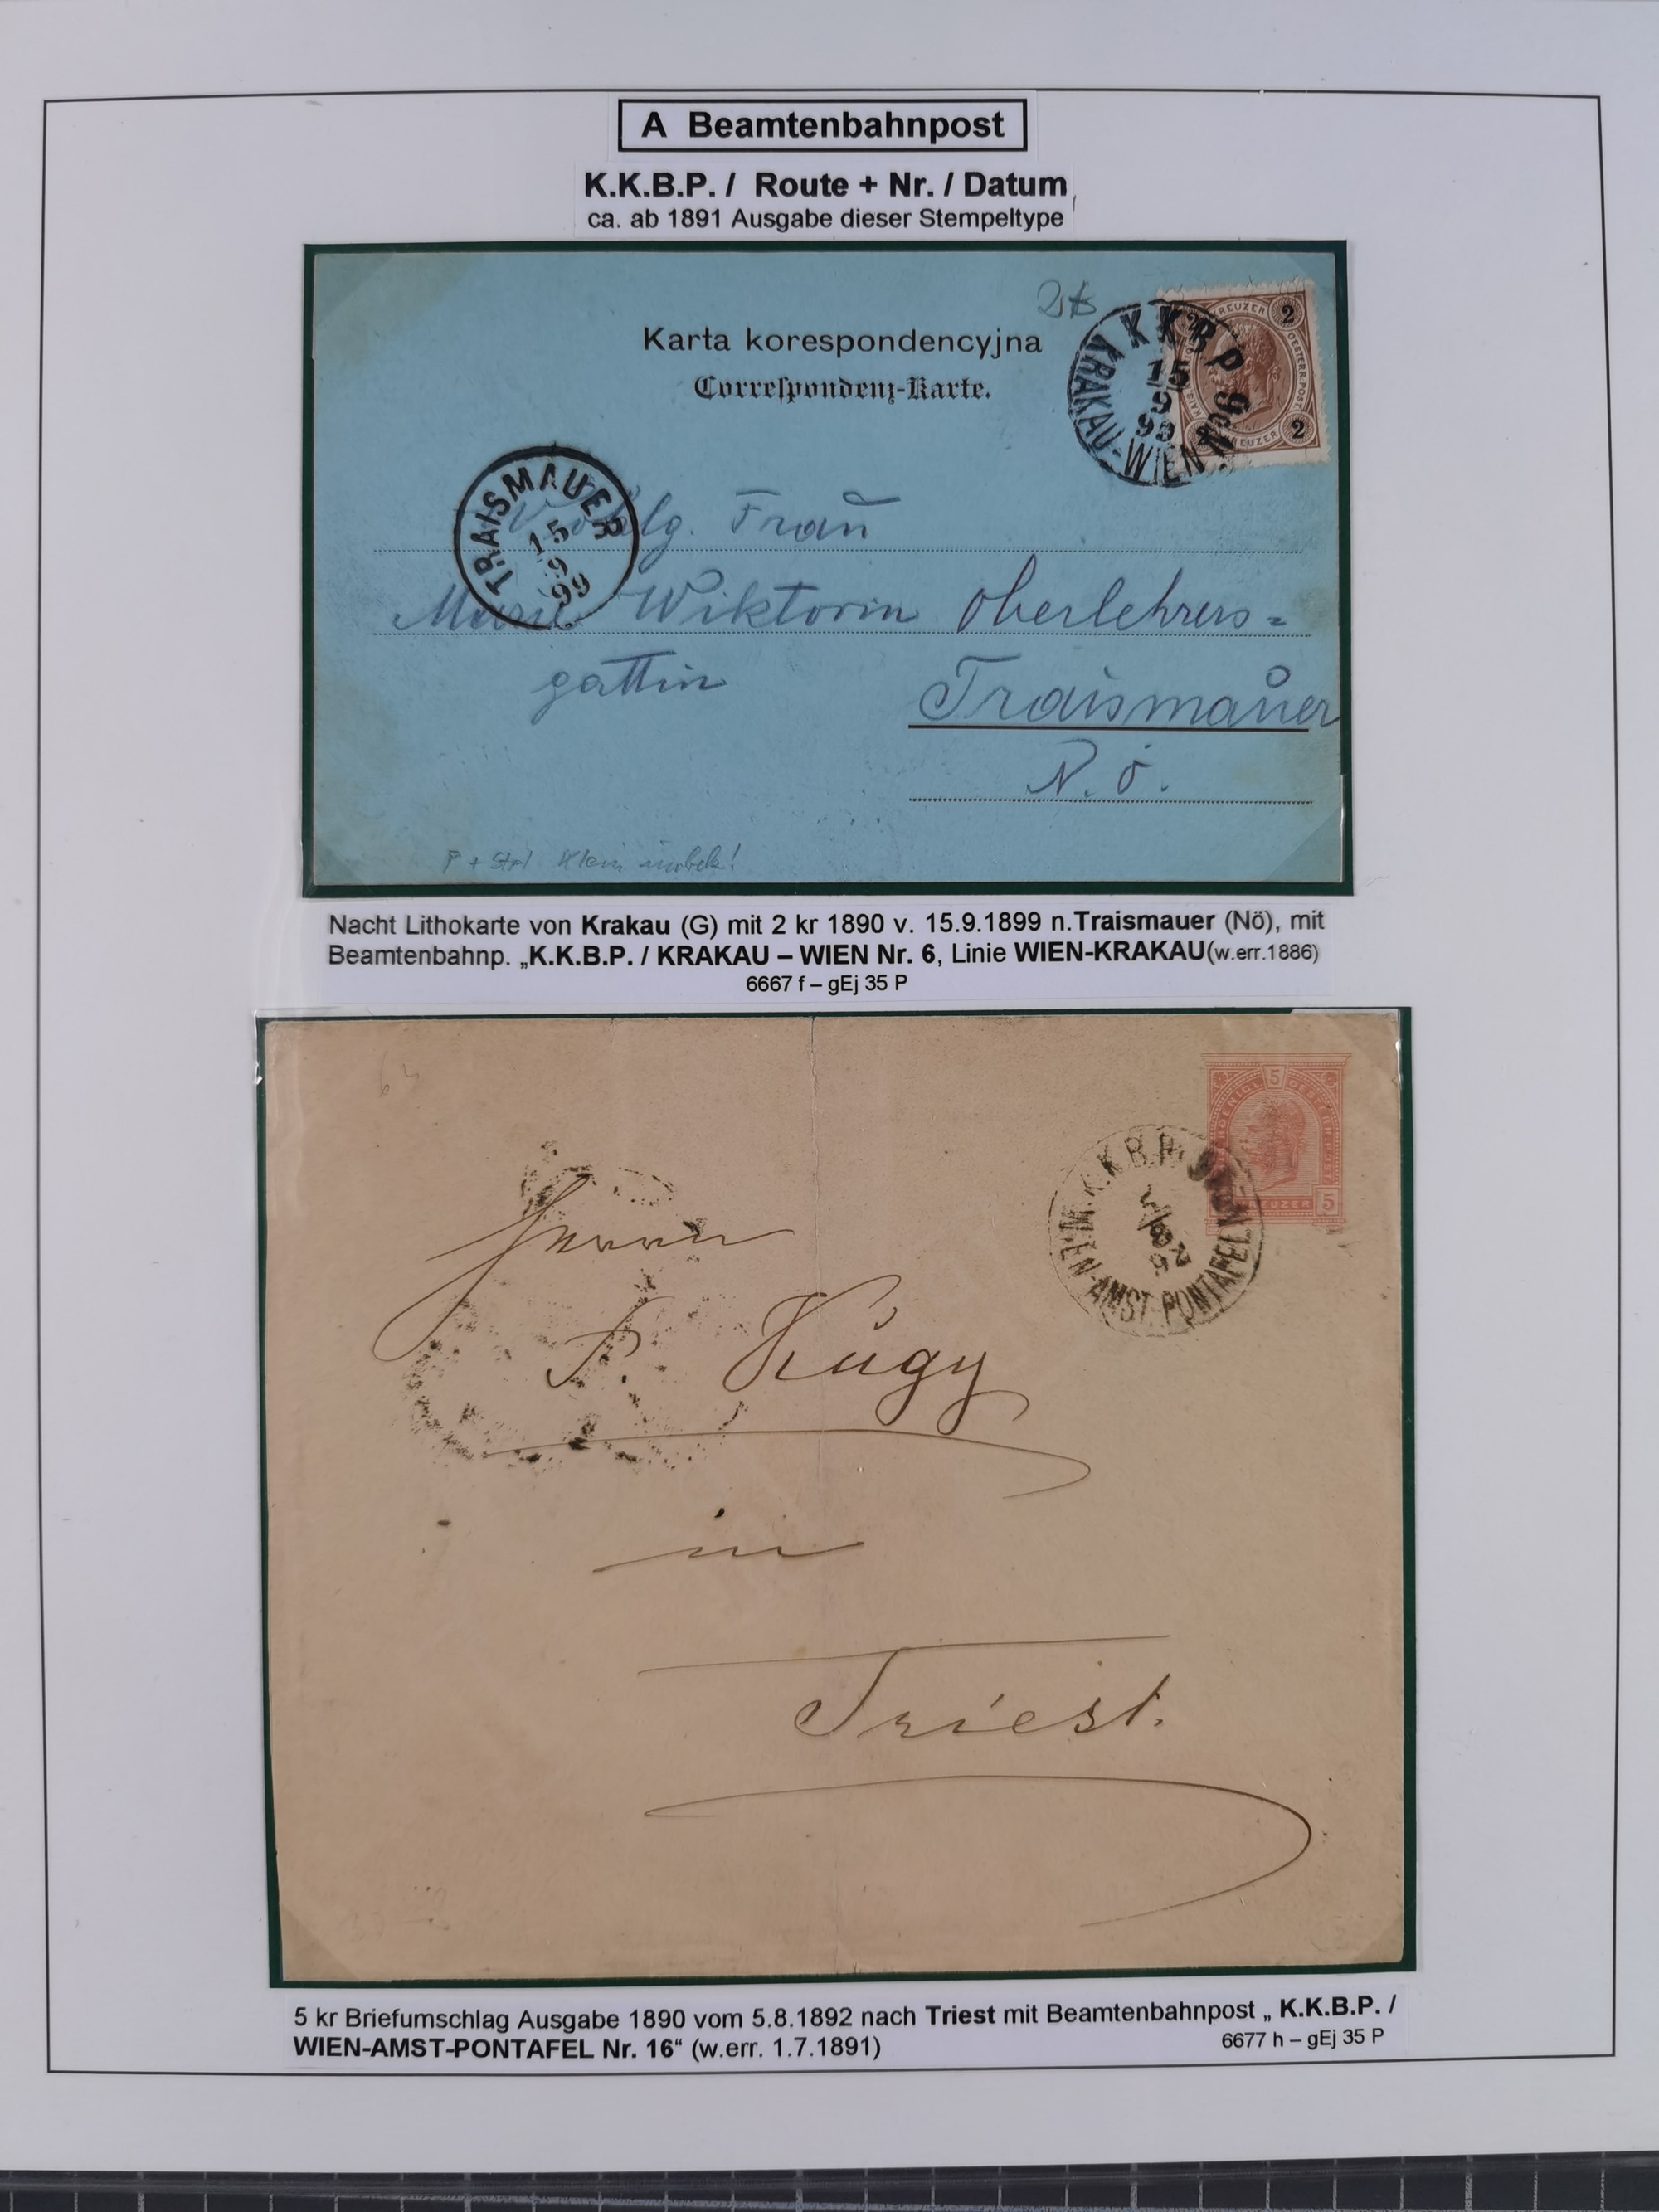 A Beamtenbahnpost
K.K.B.P. / Route + Nr. / Datum
ca. ab 1891 Ausgabe dieser Stempeltype
2
Karta korespondencyjna
Correſpondenz-Karte.
K K B P
15
9
99
KRAKAU-WIEN
KREUZER
2
2
TRAISMAUER
15
9
99
Frau
Marie Wiktorin Oberlehrers=
gattin
Traismauer
N. Ö.
Nacht Lithokarte von Krakau (G) mit 2 kr 1890 v. 15.9.1899 n.Traismauer (Nö), mit
Beamtenbahnp. „K.K.B.P. / KRAKAU – WIEN Nr. 6, Linie WIEN-KRAKAU(w.err.1886)
6667 f – gEj 35 P
5
5
K.K.B.P.
5
8
92
WIEN-AMST-PONTAFEL
Herrn
P. Kugy
in
Triest.
5 kr Briefumschlag Ausgabe 1890 vom 5.8.1892 nach Triest mit Beamtenbahnpost „ K.K.B.P. /
WIEN-AMST-PONTAFEL Nr. 16“ (w.err. 1.7.1891)
6677 h – gEj 35 P